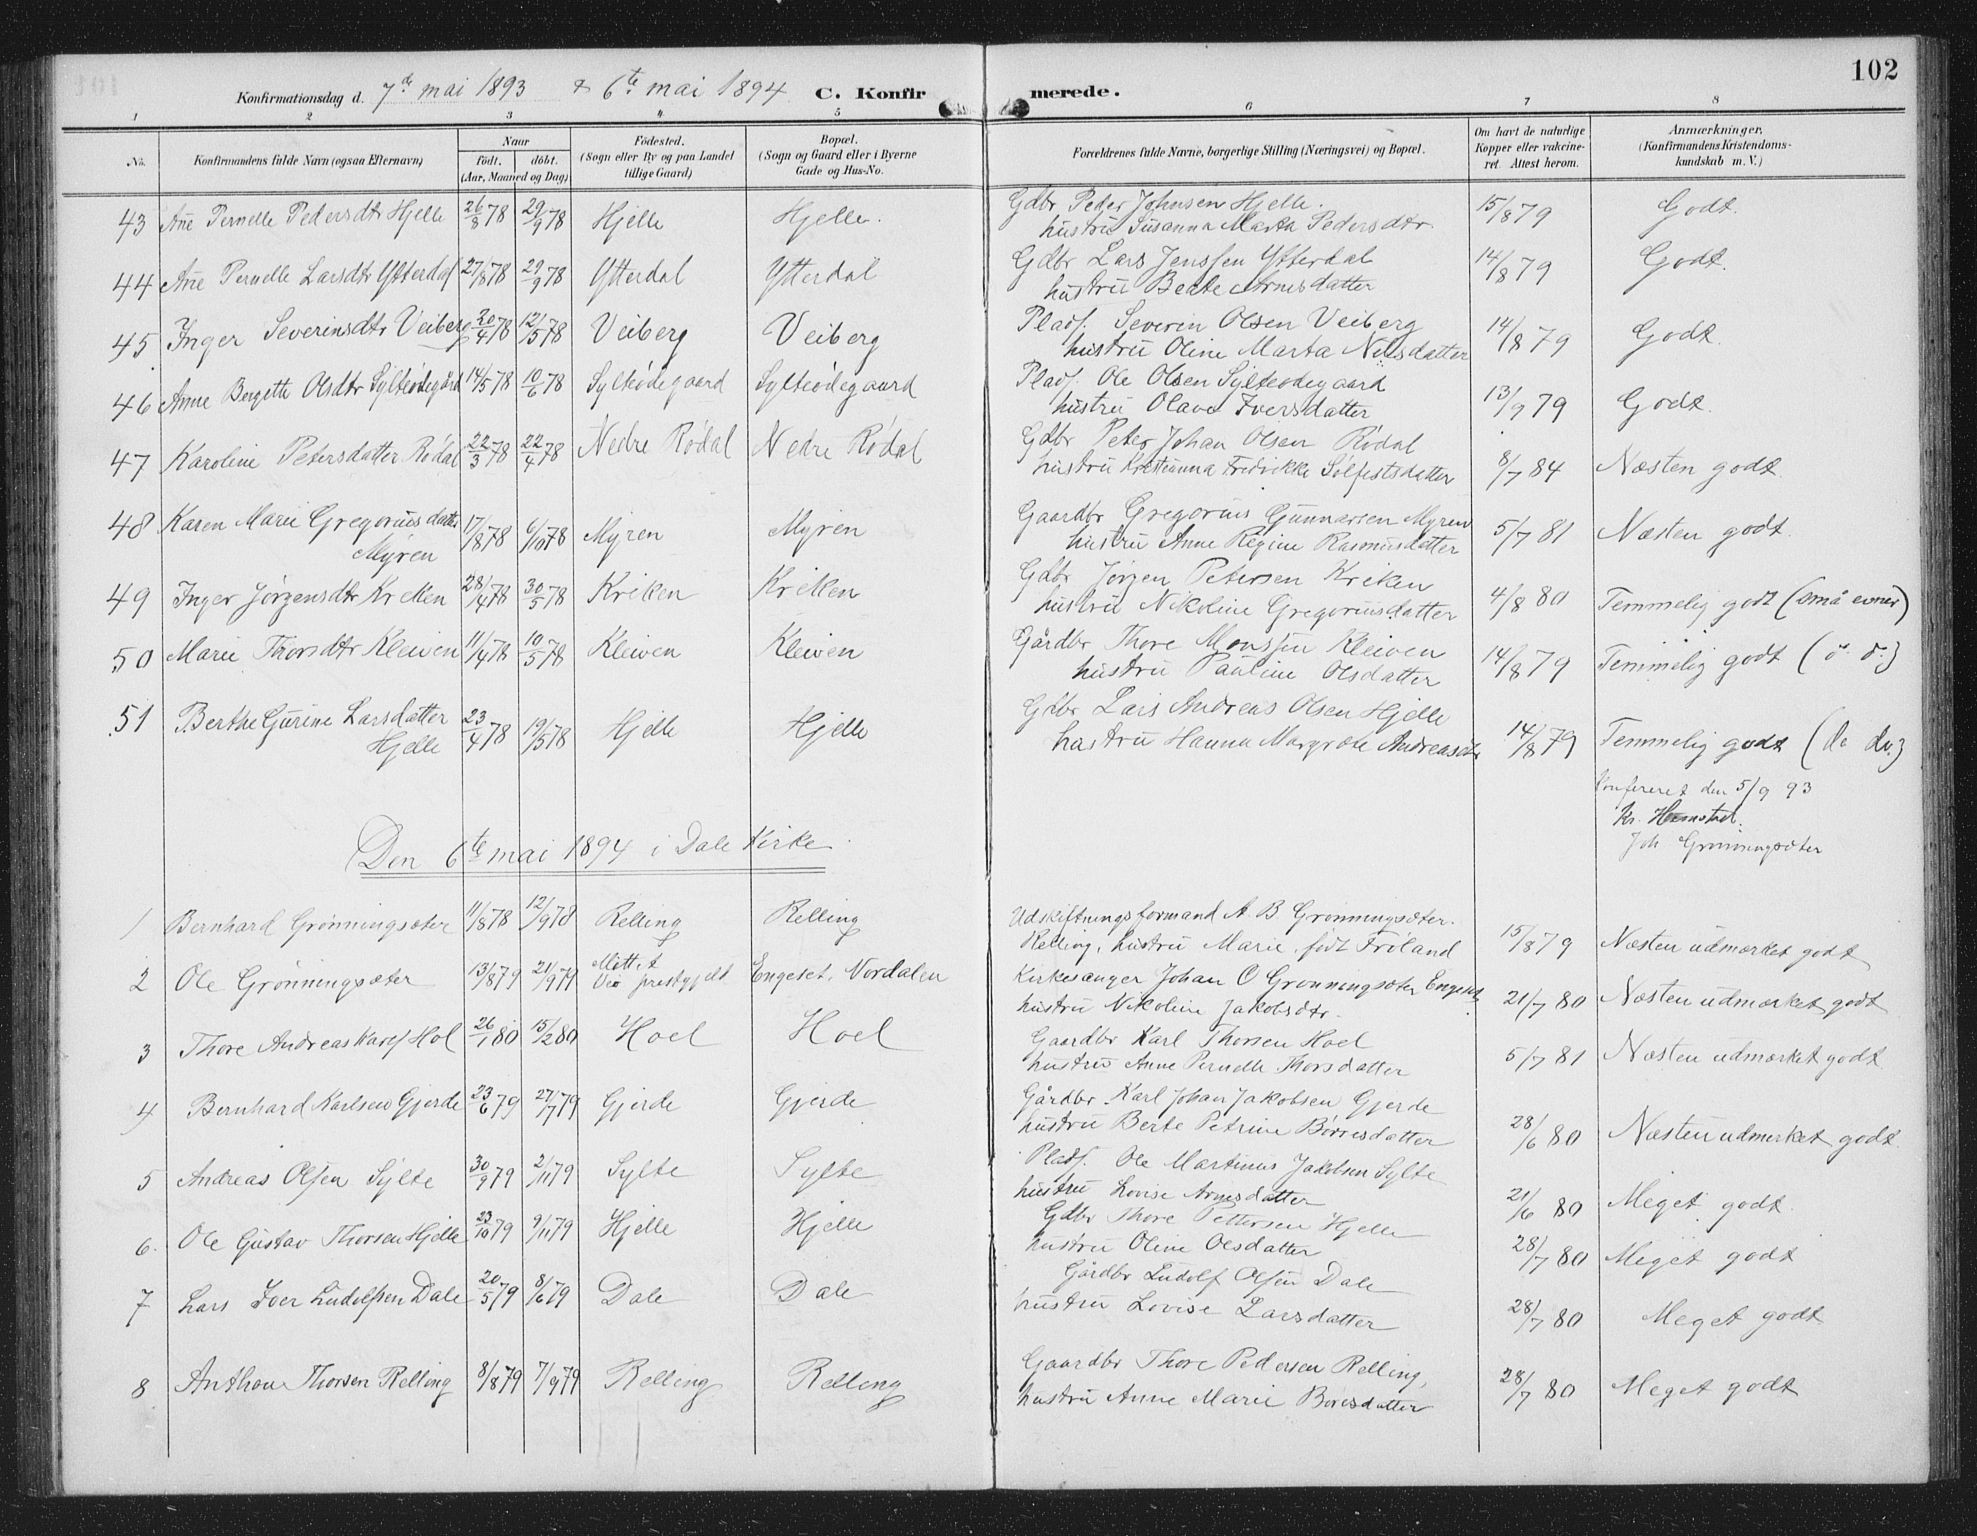 102
Konfirmationsdag d. 7de mai 1893 & 6te mai 1894. C. Konfirmerede.
1 2 3 4 5 6 7 8
No. Konfirmandens fulde Navn (ogsaa Efternavn) Naar født. døbt. (Aar, Maaned og Dag) Fødested. (Sogn eller By og paa Landet tillige Gaard) Bopæl. (Sogn og Gaard eller i Byerne Gade og Hus-No. Forældrenes fulde Navne, borgerlige Stilling (Næringsvei) og Bopæl. Om havt de naturlige Kopper eller vakcineret. Attest herom. Anmærkninger, (Konfirmandens Kristendomskundskab m. V.)
43 Ane Pernelle Pedersdtr Hjelle 26/8 78 29/9 78 Hjelle Hjelle. Gdbr Peder Johnsen Hjelle. 15/8 79 Godt.
hustru Susanna Marta Pedersdtr.
44 Ane Pernelle Larsdtr Ytterdal 27/8 78 29/9 78 Ytterdal Ytterdal Gdbr Lars Jenssen Ytterdal 14/8 79 Godt.
hustru Beate Arnesdatter
45 Inger Severinsdtr Veiberg 20/4 78 12/5 78 Veiberg Veiberg Plads. Severin Olsen Veiberg 14/8 79 Godt.
hustru Oline Marta Nilsdatter
46 Anne Bergette Olsdtr Sylteødegård 14/5 78 10/6 78 Sylteødegaard Sylteødegaard Plads. Ole Olsen Sylteødegaard 13/9 79 Godt.
hustru Olave Iversdatter
47 Karoline Petersdatter Rødal 22/3 78 22/4 78 Nedre Rødal Nedre Rødal Gdbr Peter Johan Olsen Rødal 8/7 84 Næsten godt.
hustru Kristianna Fredrikke Sølfestsdatter
48 Karen Marie Gregoriusdatter 17/8 78 6/10 78 Myren Myren Gaardbr Gregorius Gunnarsen Myren 5/7 81 Næsten godt.
Myren hustru Anne Regine Rasmusdatter
49 Inger Jørgensdtr Kreken 28/4 78 30/5 78 Kriken Kreken Gdbr Jørgen Petersen Kreken 4/8 80 Temmelig godt (små evner)
hustru Nikoline Gregoriusdatter
50 Marie Thorsdtr Kleiven 11/4 78 10/5 78 Kleiven Kleiven Gårdbr Thore Monssen Kleiven 14/8 79 Temmelig godt
hustru Pauline Olsdatter
51 Berthe Gurine Larsdatter 23/4 78 19/5 78 Hjelle Hjelle Gdbr Lars Andreas Olsen Hjelle 14/8 79 Temmelig godt (do do.)
Hjelle hustru Hanna Margrete Andreasdtr
Konfereret den 5/9 93
Kr.
Joh Grønningsæter
Den 6te mai 1894 i Dale Kirke.
1 Bernhard Grønningsæter 11/8 78 12/9 78 Relling Relling Udskiftningsformand A. B. Grønningsæter. 15/8 79 Næsten udmærket godt
Relling, hustru Marie, født Frøland
2 Ole Grønningsæter 13/8 79 21/9 79 Veø prestgjeld Engeset, Nordalen Kirkesanger Johan O Grønningsæter Engeset 21/7 80 Næsten udmærket godt
hustru Nikoline Jakobsdtr.
3 Thore Andreas Karls Hol 26/1 80 15/2 80 Hoel Hoel Gaardbr Karl Thorsen Hoel 5/7 81 Næsten udmærket godt
hustru Anne Pernelle Thorsdatter
4 Bernhard Karlsen Gjerde 23/6 79 27/7 79 Gjerde Gjerde Gårdbr. Karl Johan Jakobsen Gjerde 28/6 80 Næsten udmerket godt
hustru Berte Petrine Børresdatter
5 Andreas Olsen Sylte 30/9 79 2/11 79 Sylte Sylte Plads. Ole Martinus Jakobsen Sylte 21/6 80 Meget godt.
hustru Lovise Arnesdatter
6. Ole Gustav Thorsen Hjelle 23/10 79 9/11 79 Hjelle Hjelle Gdbr Thore Pettersen Hjelle 28/7 80 Meget godt
hustru Oline Olsdatter
7 Lars Iver Ludolfsen Dale 20/5 79 8/6 79 Dale Dale Gårdbr Ludolf Olsen Dale 28/7 80 Meget godt
hustru Lovise Larsdatter
8 Anthon Thorsen Relling 8/8 79 7/9 79 Relling Relling Gaardbr Thore Pedersen Relling, 28/7 80 Meget godt
hustru Anne Marie Boresdatter